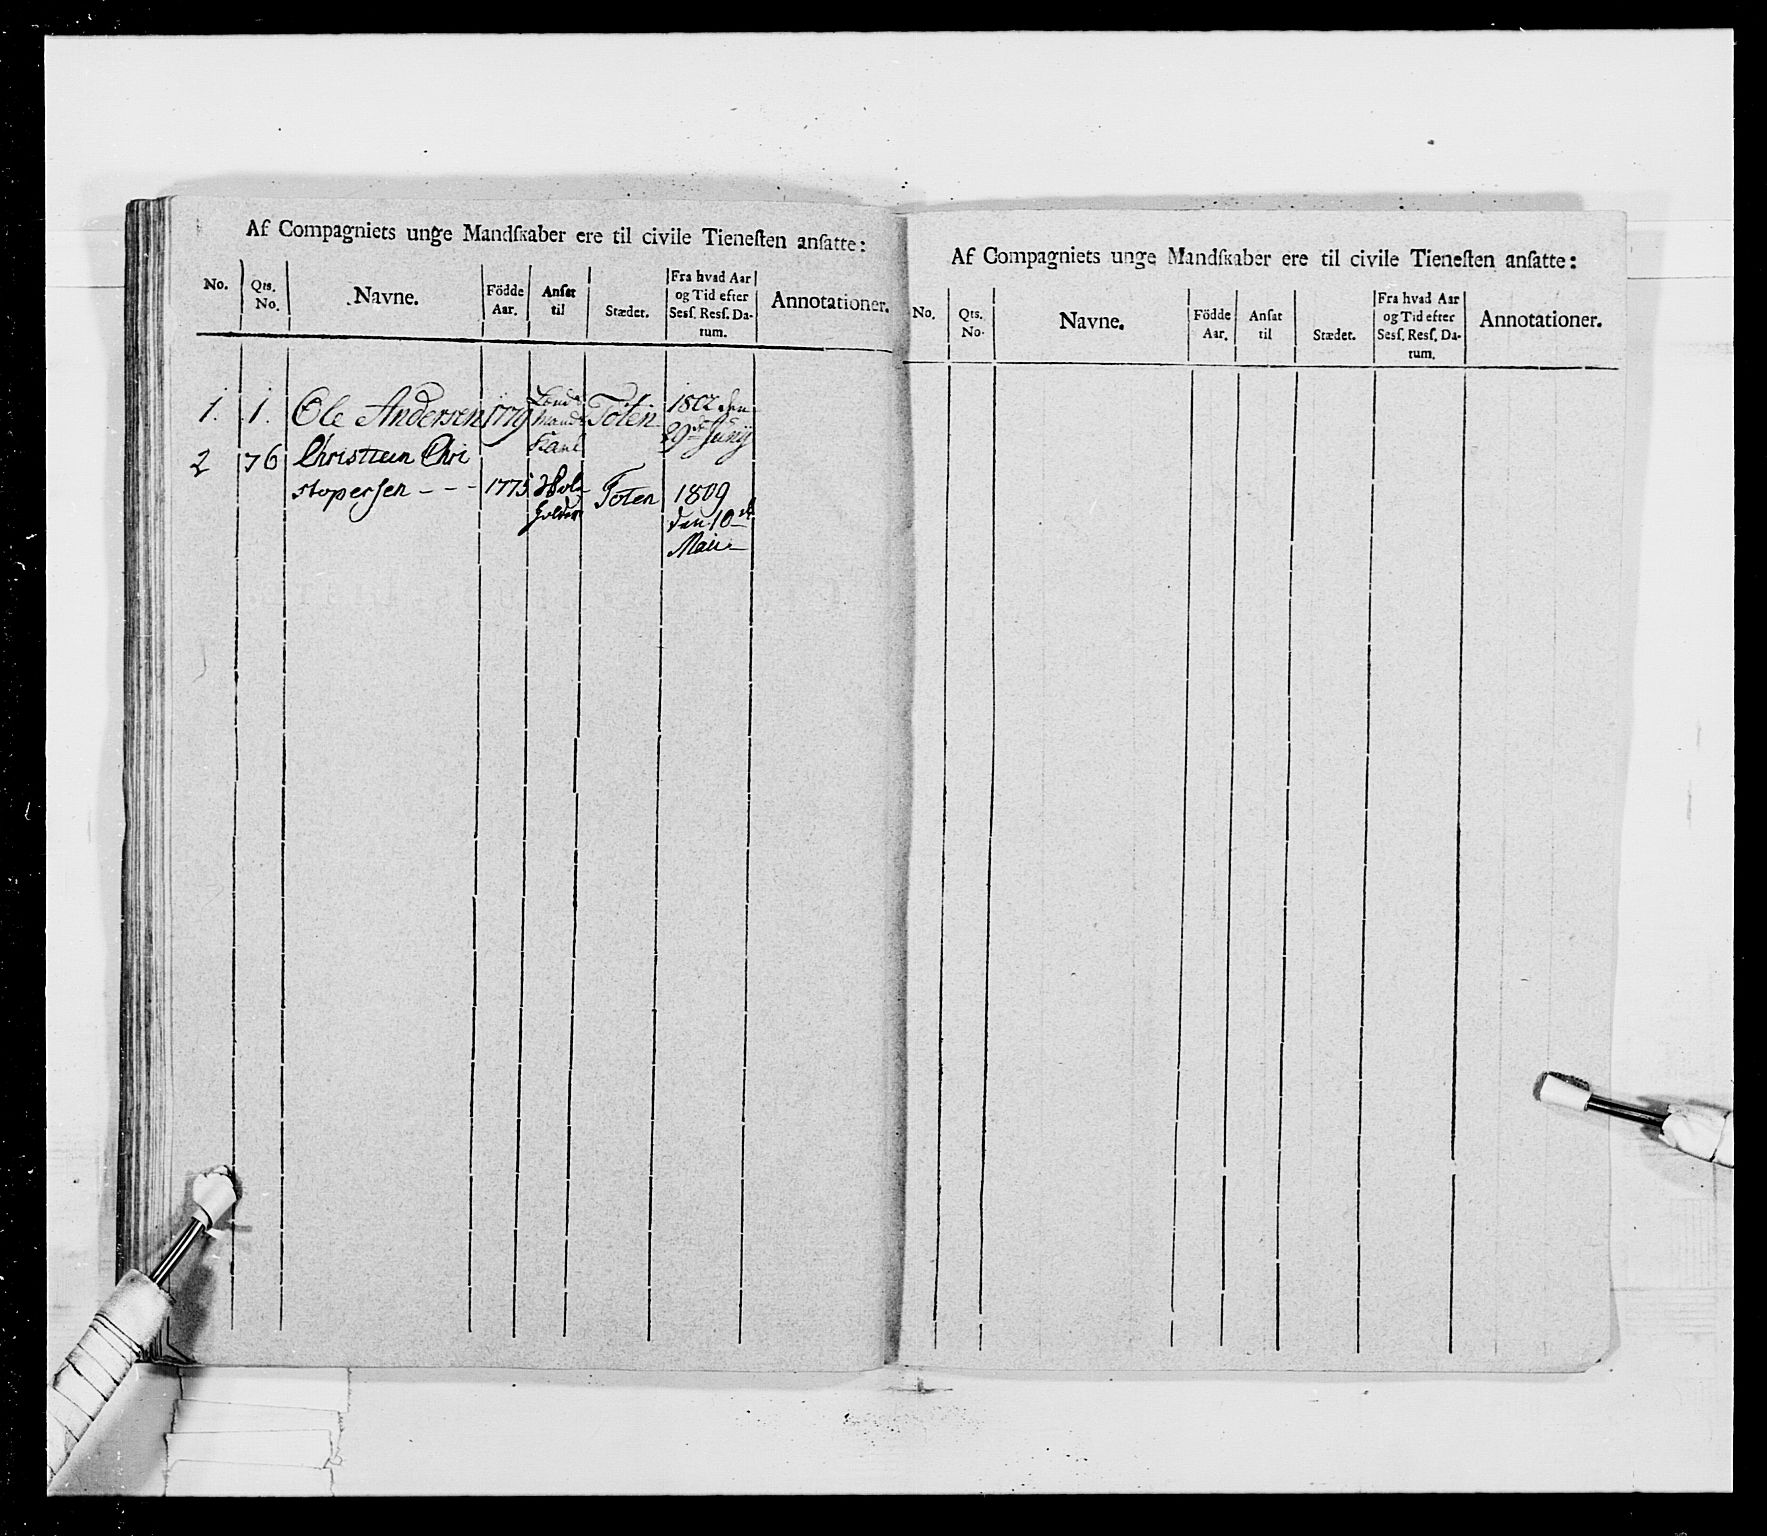 Af Compagniets unge Mandſkaber ere til civile Tieneſten anſatte:
No. Qts. No. Navne. Födde Aar. Anſat til Stædet. Fra hvad Aar og Tid efter Sesſ. Resſ. Datum. Annotationer.
1. 1. Ole Andersen 1779 Lænds Toten 1802 den
Mands 29de Junij
Karl
2 76 Christian Chri
stopersen - - - 1775 Toten 1809
den 10de
Maii
Af Compagniets unge Mandſkaber ere til civile Tieneſten anſatte:
No. Qts. No. Navne. Födde Aar. Anſat til Stædet. Fra hvad Aar og Tid efter Sesſ. Resſ. Datum. Annotationer.